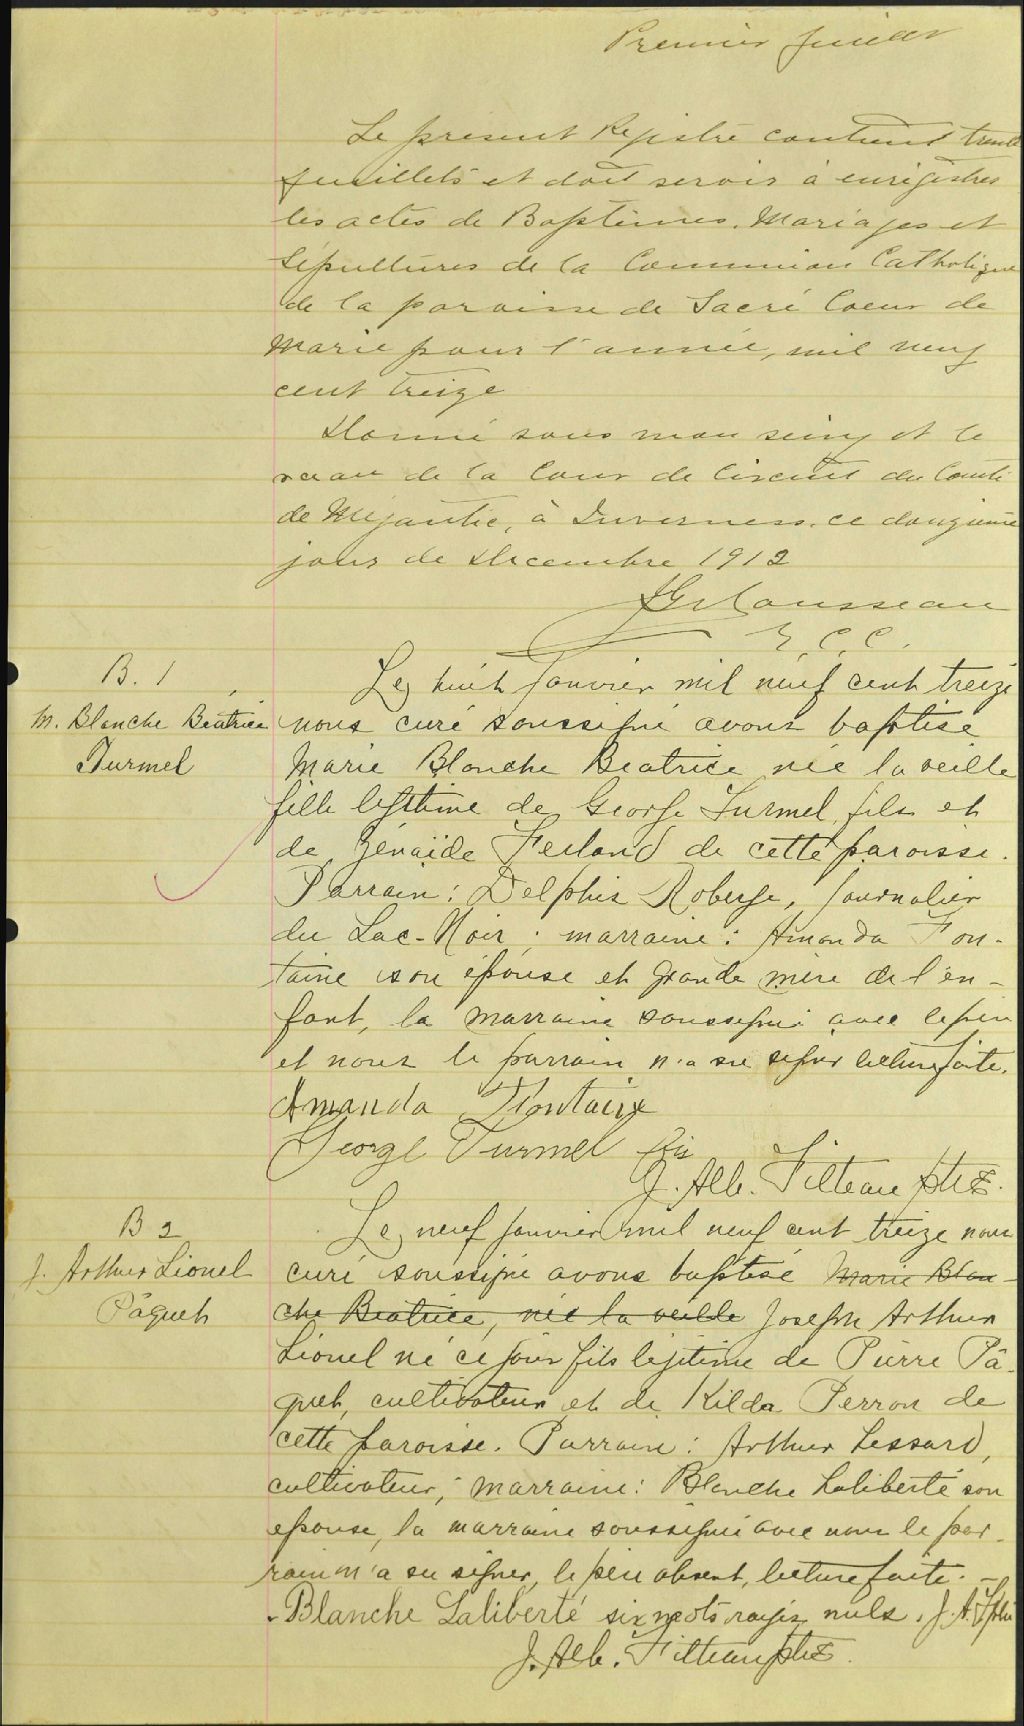 Premier feuillet
Le présent Registre contient trente
feuillets et doit servir à enrégistrer
les actes de Baptêmes, Mariages et
Sépultures de la Communion Catholique
de la paroisse de Sacré Coeur de
Marie pour l'année, mil neuf
cent treize
Donné sous mon seing et le
sceau de la Cour de Circuit du Comté
de Mégantic, à Inverness, ce douzième
jour de Décembre 1912
Rousseau
G. C. C.
B. 1
M. Blanche Béatrice
Turmel
Le huit Janvier mil neuf cent treize
nous curé soussigné avons baptisé
Marie Blanche Beatrice née la veille
fille légitime de George Turmel fils et
de Zénaïde Ferland de cette paroisse.
Parrain: Delphis Roberge, journalier
du Lac-Noir; marraine: Amanda Fon-
taine son épouse et grande mère de l'en-
fant, la marraine soussigné avec le père
et nous le parrain n'a su signer lecture faite.
Amanda Fontaine
George Turmel fils
J. Alb. Filteau ptre
B 2
J. Arthur Lionel
Pâquet
Le neuf janvier mil neuf cent treize nous
curé soussigné avons baptisé Marie Blan-
che Beatrice, née la veille Joseph Arthur
Lionel né ce jour fils légitime de Pierre Pâ-
quet, cultivateur et de Kilda Perron de
cette paroisse. Parrain: Arthur Lessard,
cultivateur; marraine: Blanche Laliberté son
epouse, la marraine soussigné avec nous le par-
rain n'a su signer, le père absent, lecture faite.
Blanche Laliberté six mots rayés nuls. J. A. F. ptre
J. Alb. Filteau ptre.